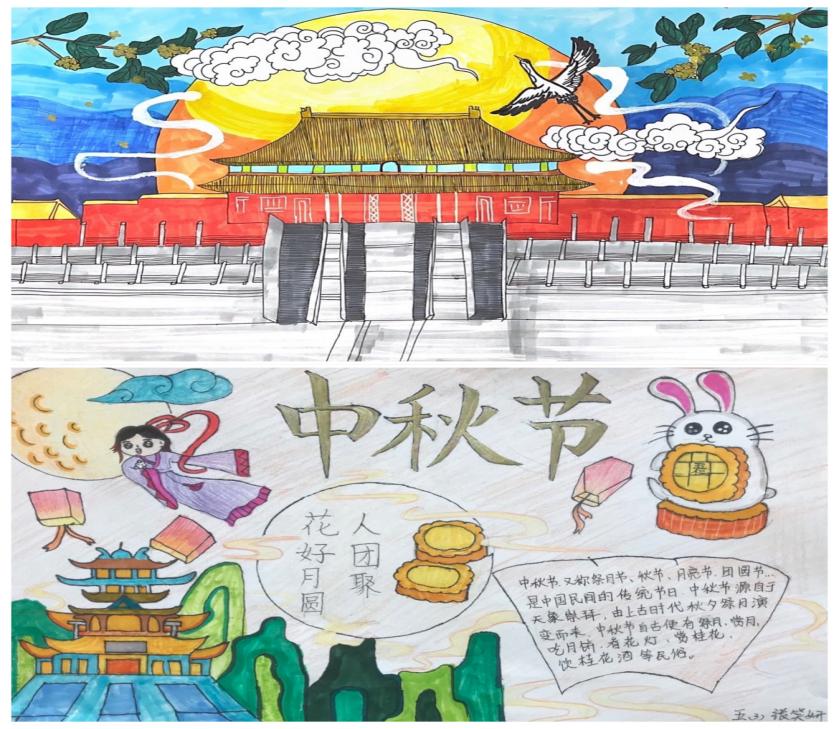 中秋节
人团聚
花好月圆
中秋节又称祭月节、秋节、月亮节、团圆节...
是中国民间的传统节日。中秋节源自于
天象崇拜,由上古时代秋夕祭月演
变而来。中秋节自古便有祭月、赏月、
吃月饼、看花灯、赏桂花、
饮桂花酒等民俗。
五(3) 张笑妍